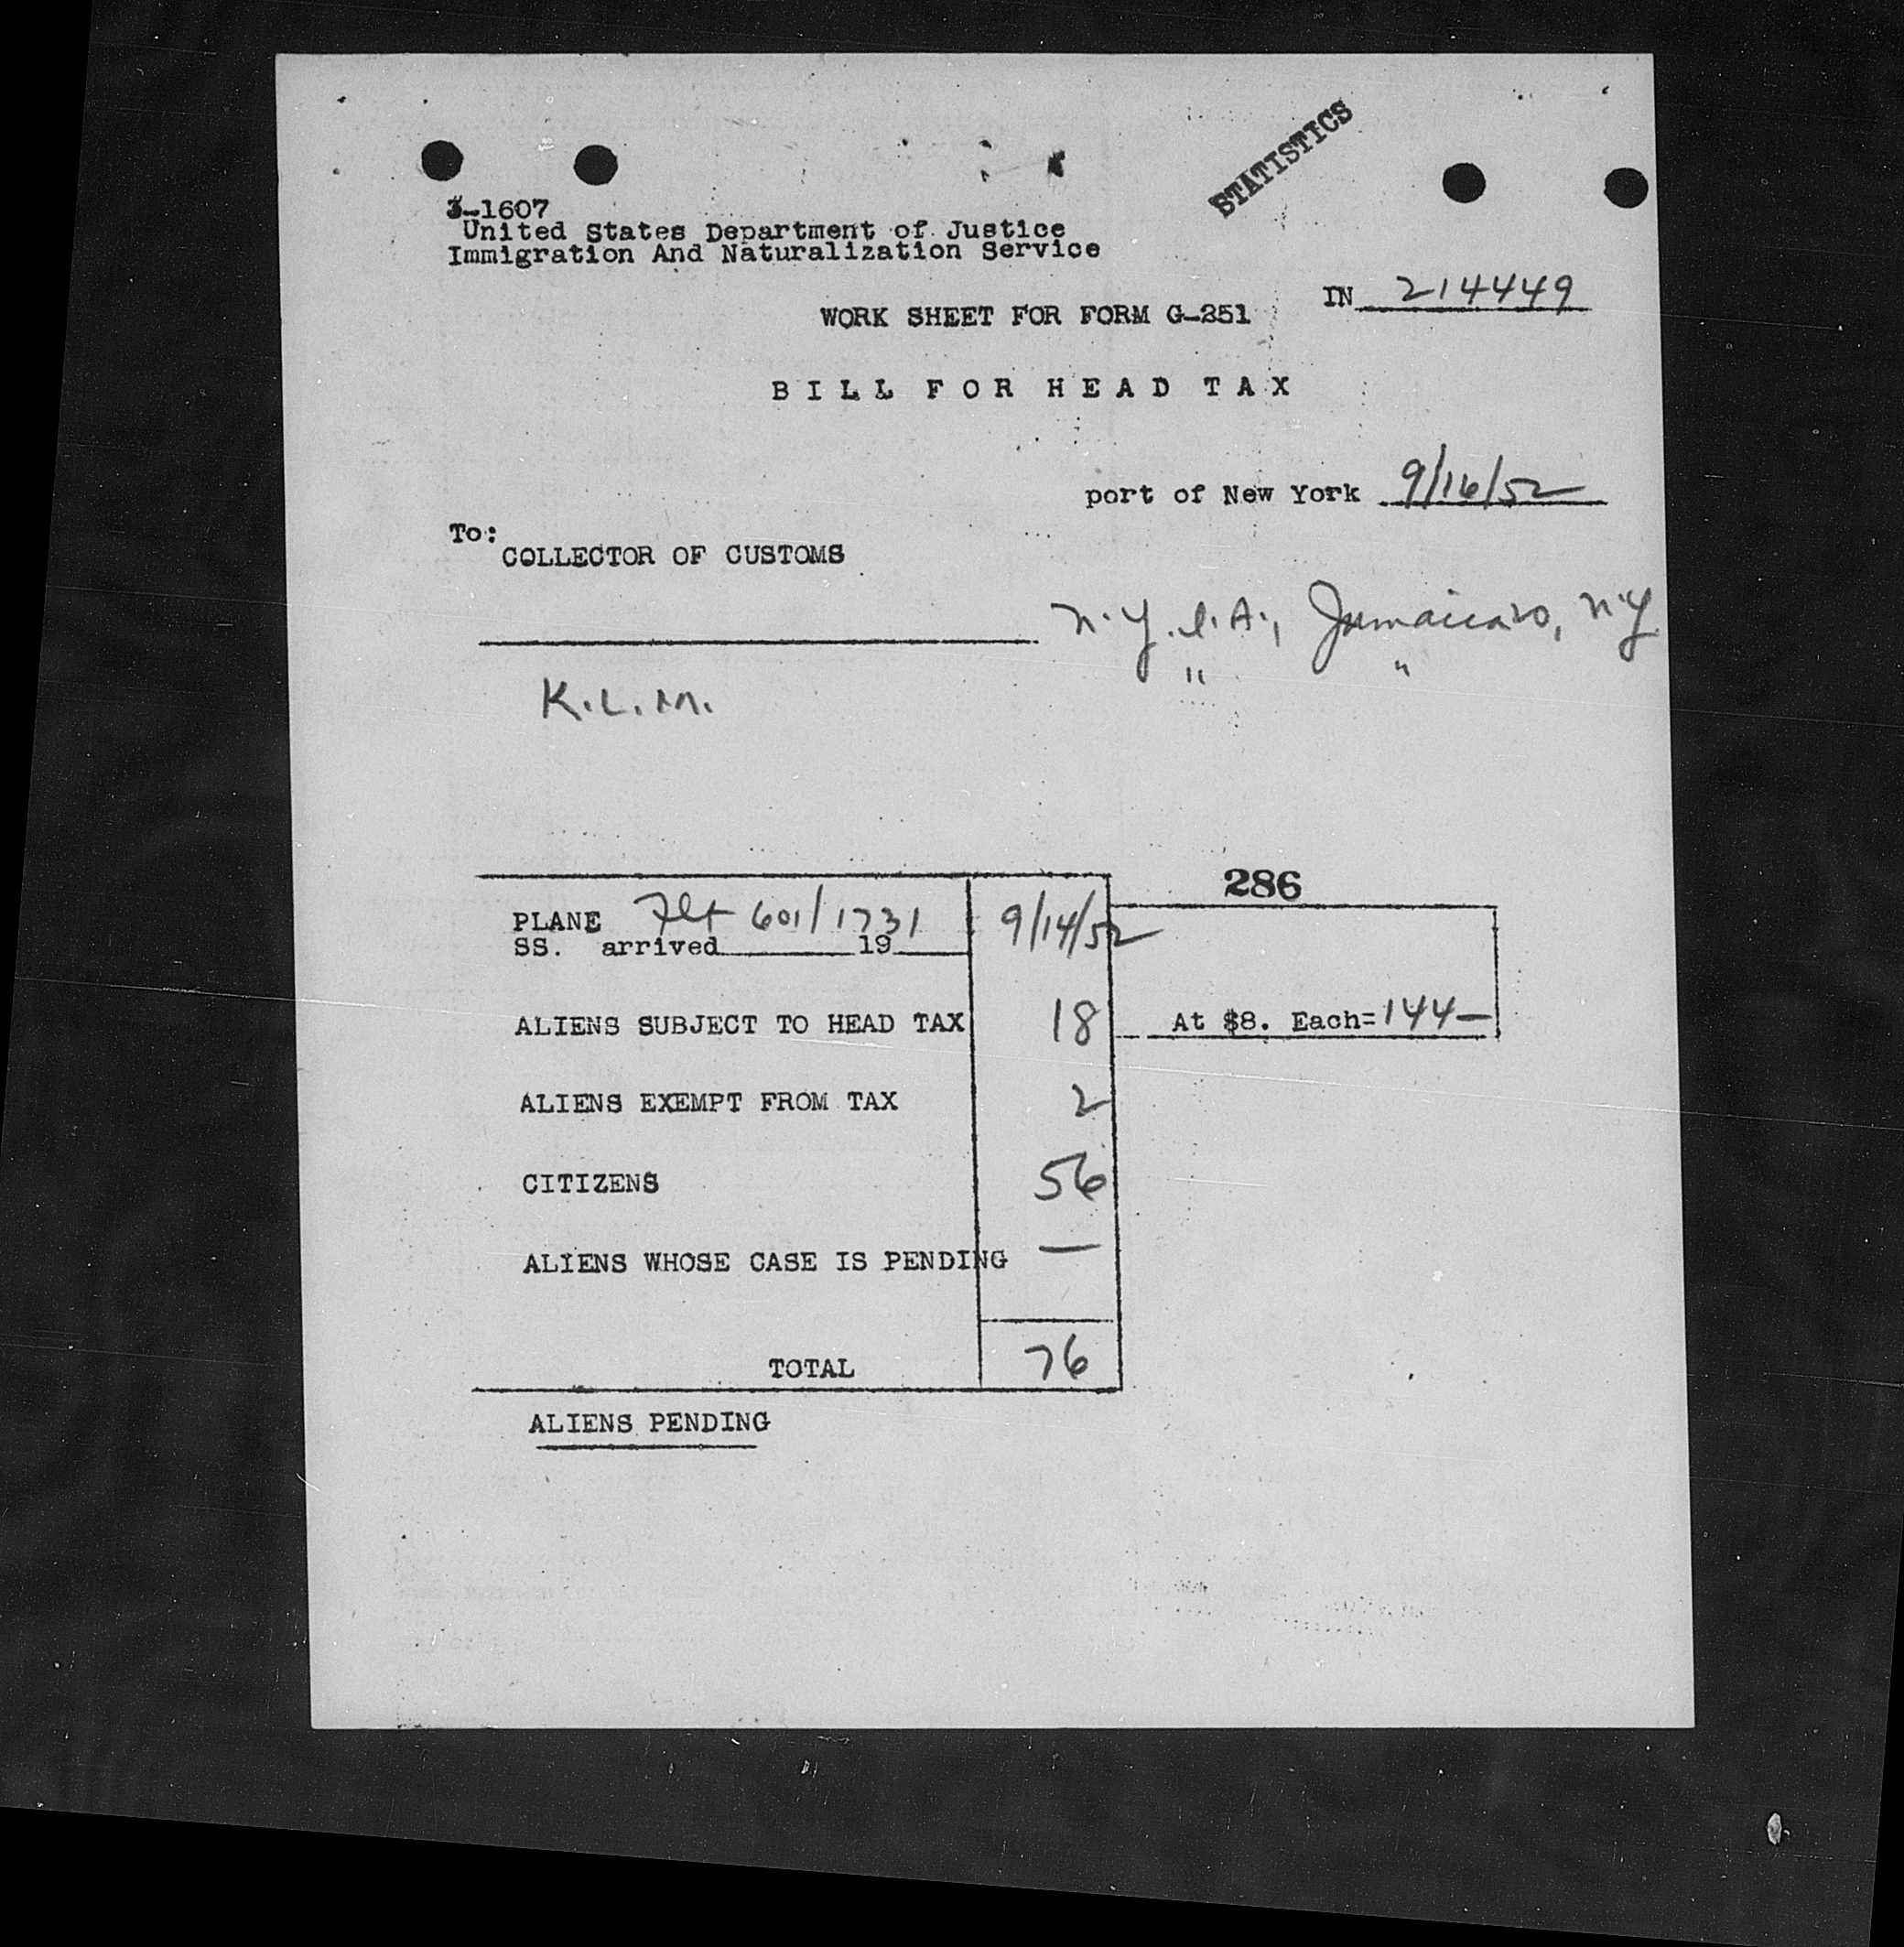 STATISTICS
3-1607
United States Department of Justice
Immigration And Naturalization Service
IN 214449
WORK SHEET FOR FORM G-251
BILL FOR HEAD TAX
port of New York 9/16/52
To:
COLLECTOR OF CUSTOMS
N.Y.I.A., Jamaica 20, N.Y.
" "
K.L.M.
286
PLANE Flt 601/1731 9/14/52
SS. arrived 19
ALIENS SUBJECT TO HEAD TAX 18 At $8. Each=144—
ALIENS EXEMPT FROM TAX 2
CITIZENS 56
ALIENS WHOSE CASE IS PENDING —
TOTAL 76
ALIENS PENDING